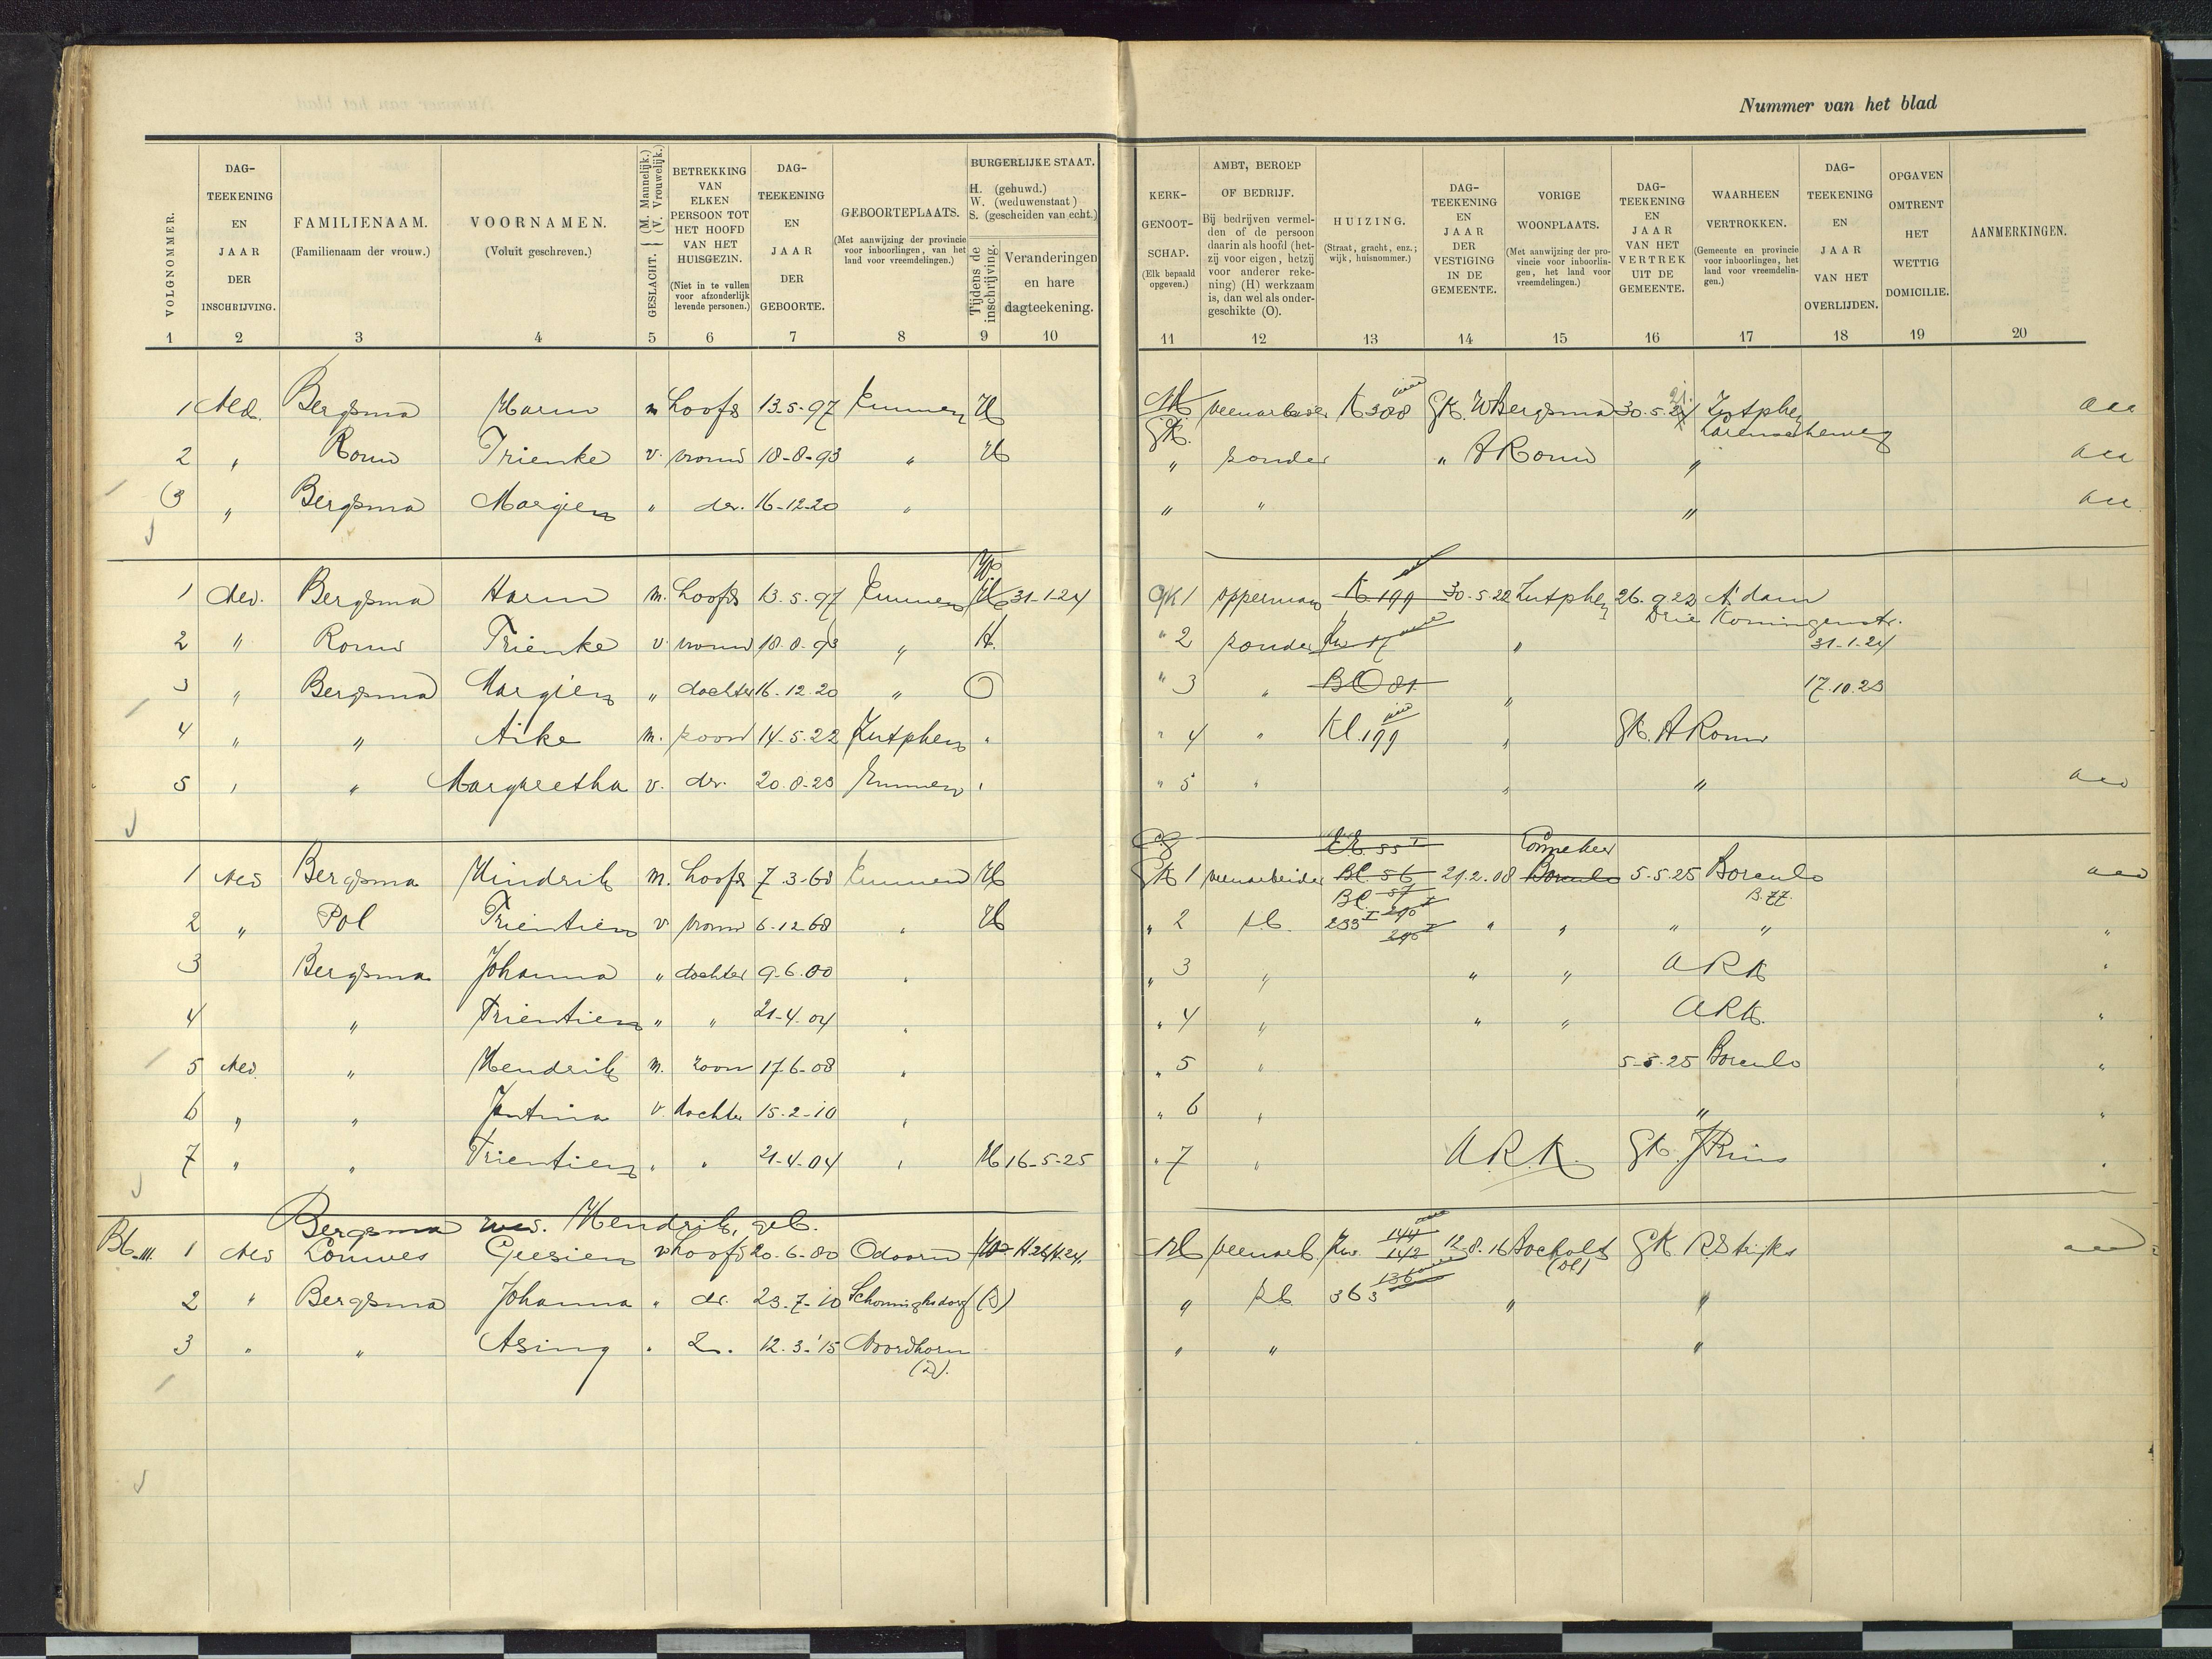 Nummer van het blad
VOLGNOMMER.
DAG-
TEEKENING
EN
JAAR
DER
INSCHRIJVING.
FAMILIENAAM.
(Familienaam der vrouw.)
VOORNAMEN.
(Voluit geschreven.)
GESLACHT. { (M. Mannelijk.)
(V. Vrouwelijk.)
BETREKKING
VAN
ELKEN
PERSOON TOT
HET HOOFD
VAN HET
HUISGEZIN.
(Niet in te vullen
voor afzonderlijk
levende personen.)
DAG-
TEEKENING
EN
JAAR
DER
GEBOORTE.
GEBOORTEPLAATS.
(Met aanwijzing der provincie
voor inboorlingen, van het
land voor vreemdelingen.)
BURGERLIJKE STAAT.
H. (gehuwd.)
W. (weduwenstaat)
S. (gescheiden van echt.)
Tijdens de
inschrijving.
Veranderingen
en hare
dagteekening.
KERK-
GENOOT-
SCHAP.
(Elk bepaald
opgeven.)
AMBT, BEROEP
OF BEDRIJF.
Bij bedrijven vermel-
den of de persoon
daarin als hoofd (het-
zij voor eigen, hetzij
voor anderer reke-
ning) (H) werkzaam
is, dan wel als onder-
geschikte (O).
HUIZING.
(Straat, gracht, enz.;
wijk, huisnommer.)
DAG-
TEEKENING
EN
JAAR
DER
VESTIGING
IN DE
GEMEENTE.
VORIGE
WOONPLAATS.
(Met aanwijzing der pro-
vincie voor inboorlin-
gen, het land voor
vreemdelingen.)
DAG-
TEEKENING
EN
JAAR
VAN HET
VERTREK
UIT DE
GEMEENTE.
WAARHEEN
VERTROKKEN.
(Gemeente en provincie
voor inboorlingen, het
land voor vreemdelin-
gen.)
DAG-
TEEKENING
EN
JAAR
VAN HET
OVERLIJDEN.
OPGAVEN
OMTRENT
HET
WETTIG
DOMICILIE.
AANMERKINGEN.
1 2 3 4 5 6 7 8 9 10 11 12 13 14 15 16 17 18 19 20
1 Ned. Bergsma Harm m hoofd 13.5.97 Emmen H NH veenarbeider K 308 GK. W Bergsma 30.5.21 Zutphen
GK. Larenscheweg
2 " Rouw Trienke v. vrouw 18-8-93 " H " zonder " A Rouw "
3 " Bergsma Margien " der. 16-12-20 " " " "
1 Ned. Bergsma Harm m. hoofd 13.5.97 Emmen H W 31-1-24 GK 1 opperman K 199 30.5.22 Zutphen 26.9.22 A'dam
Drie Koningenstr.
2 " Rouw Trienke v. vrouw 18.8.93 " H. " 2 zonder " 31-1-24
3 " Bergsma Margien " dochter 16.12.20 " O " 3 " BO 81 " 17.10.23
4 " " Aike m. zoon 14-5.22 Zutphen " " 4 " Kl. 199 " GK. A Rouw
5 " " Margaretha v. der. 20.8-23 Emmen " " 5 " " "
1 Ned Bergsma Hindrik m. hoofd 7.3-68 Emmen H GK 1 veenarbeider BC 56 21.2.08 Borculo 5.5.25 Borculo
B.77.
2 " Pol Trientien v vrouw 6-12-68 " H " 2 z.b. BC. 57 233 I 290 I " " " " "
3 Bergsma Johanna " dochter 9.6.00 " " 3 " " " ARK "
4 " Trientien " " 21-4-04 " " 4 " " " ARK. "
5 Ned. " Hendrik m. zoon 17-6-08 " " 5 " 5-5-25 Borculo "
6 " " Jantina v. dochter 15-2-10 " " 6 " " "
7 " " Trientien " " 21-4-04 " H 16-5-25 " 7 " A.R.K. GK. "
Bergsma wed. Hendrik, geb.
1 Ned Louwes Geesien v hoofd 20.6-80 Odoorn W H 26/4.24. NH veenarb. Kw. 144 142 12.8.16 Bocholt (Dl) GK
2 " Bergsma Johanna " dr. 23.7-10 Schoninghsdorf (D) " z.b. 363 136 " "
3 " " Asing " Z. 12.3.'15 Noordhorn " " "
(D).